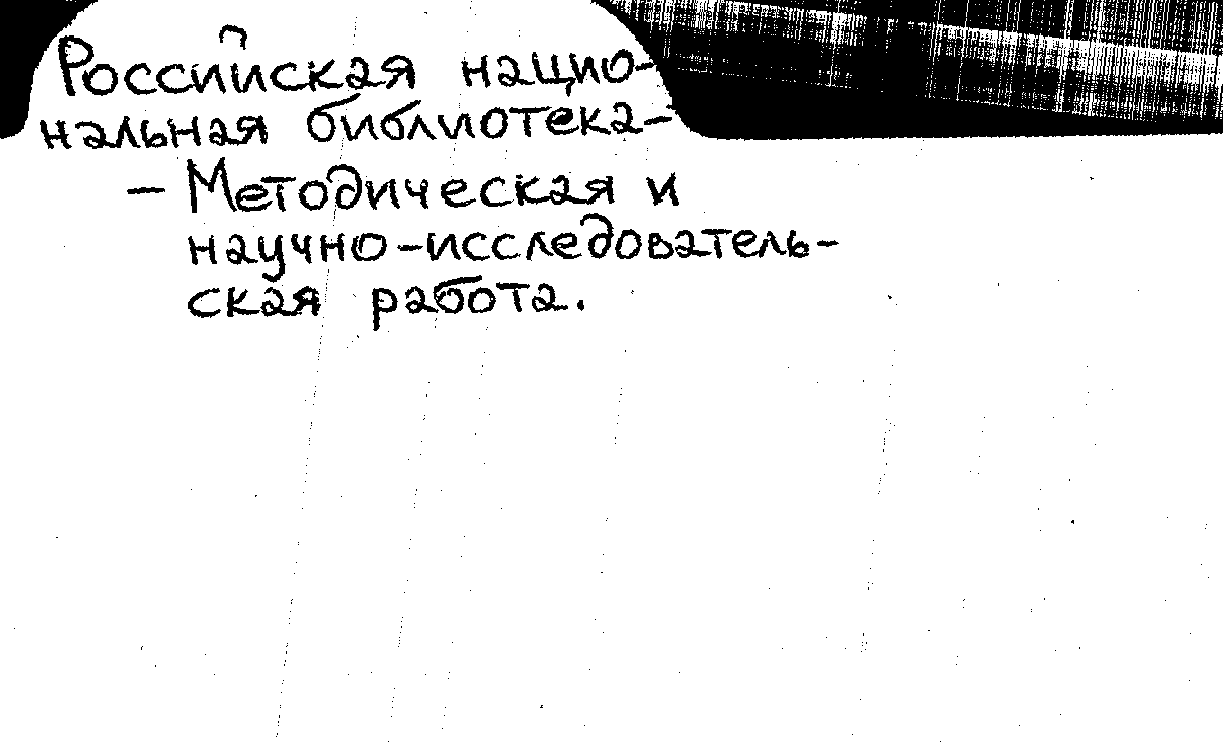 Российская нацио-
нальная библиотека-
- Методическая и
научно-исследователь-
ская работа.